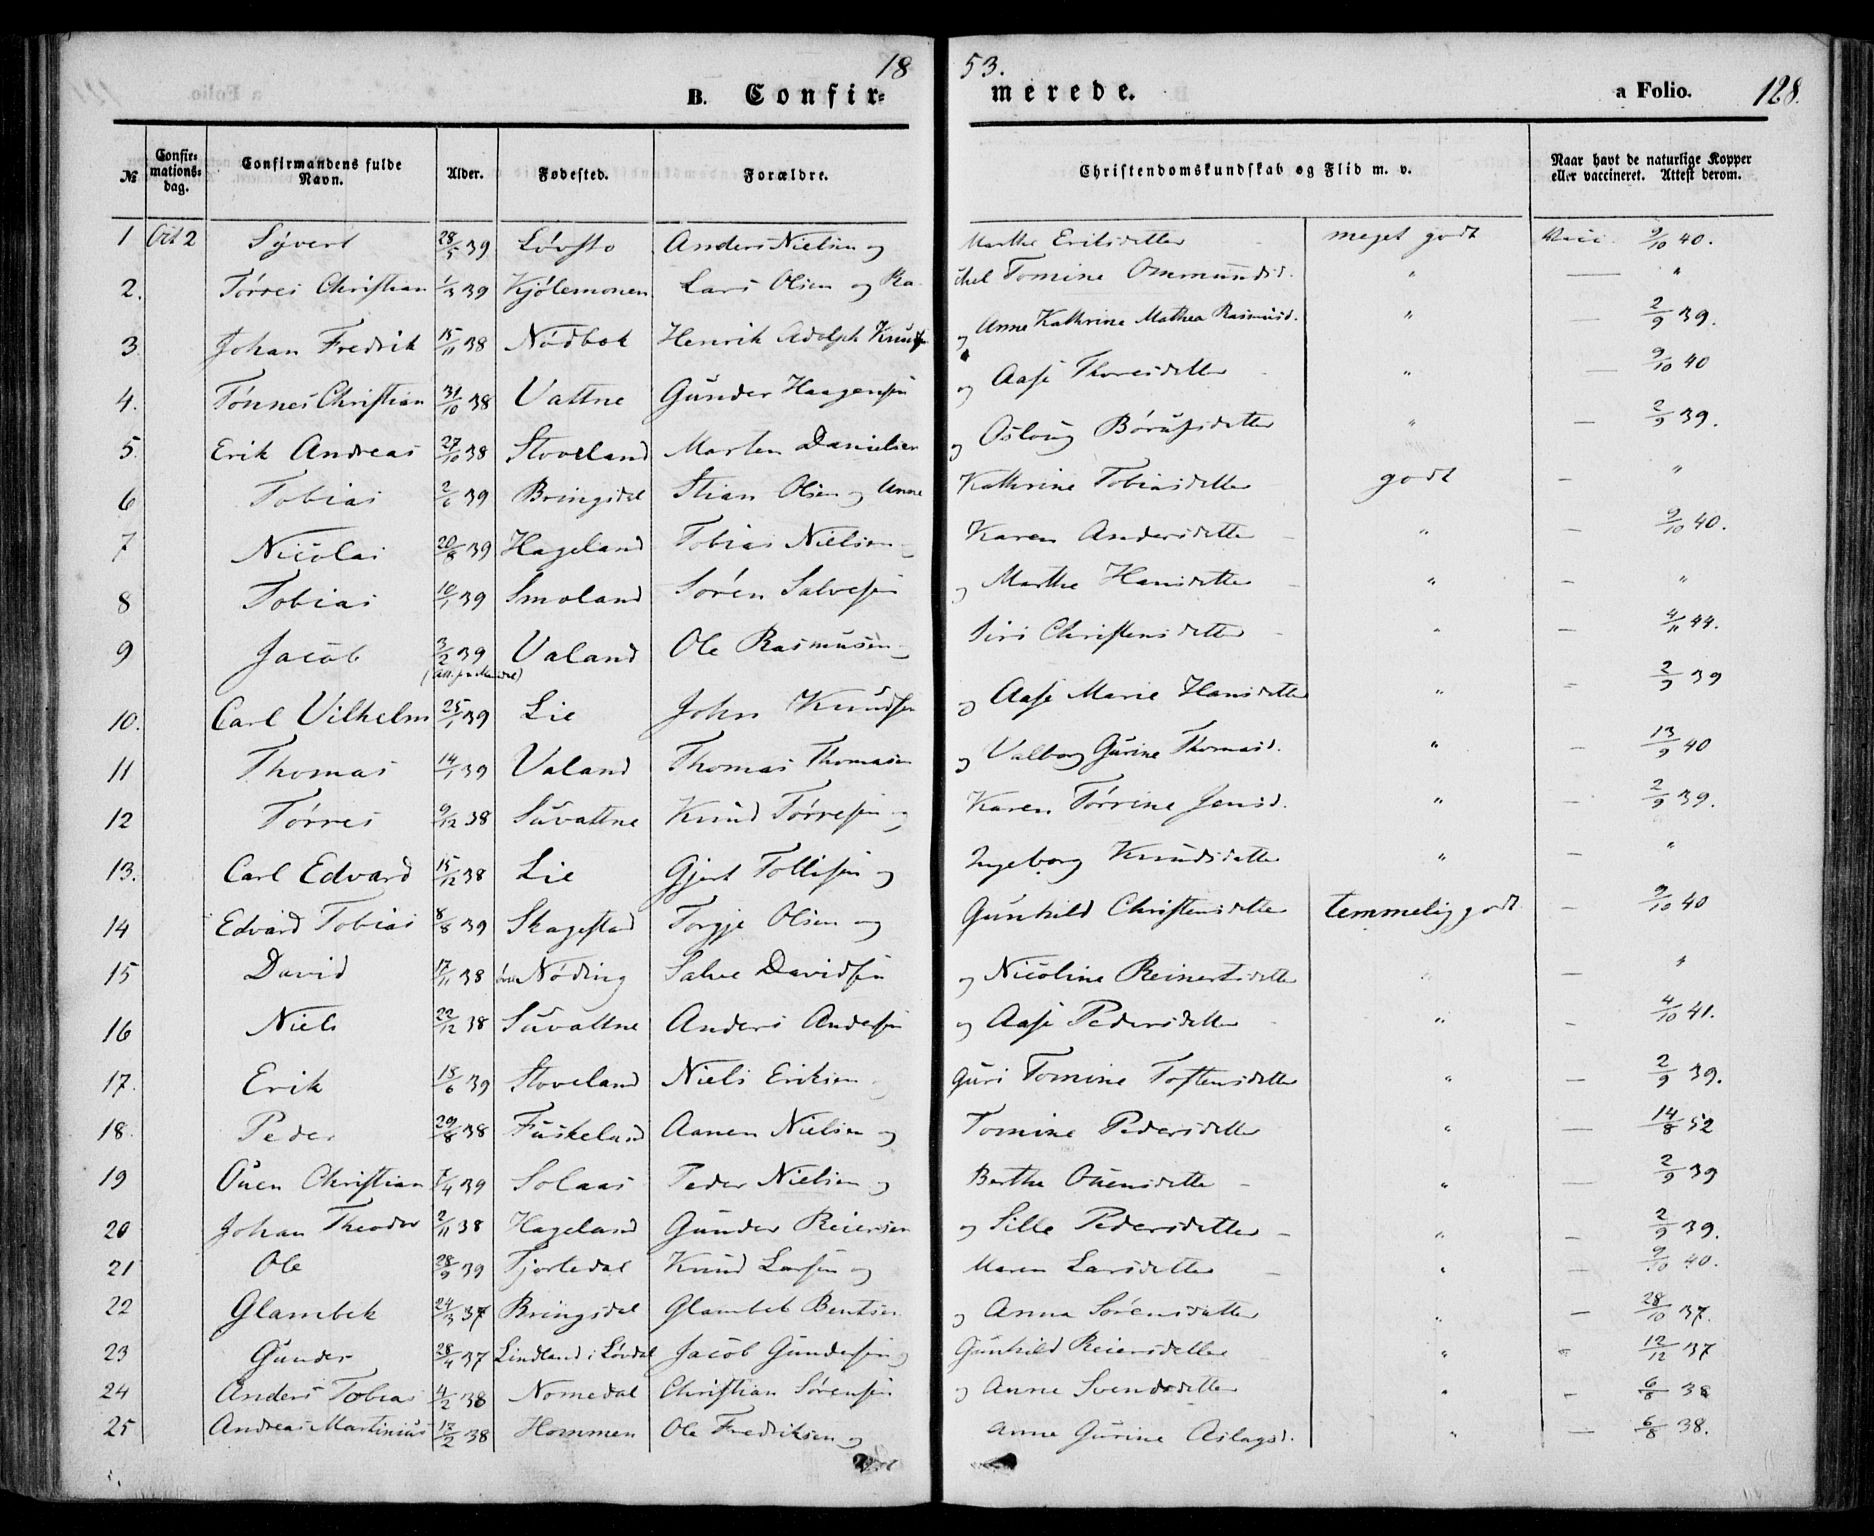 18 53.
B. Confir= merede. a Folio. 128.
№ Confir=mations=dag. Confirmandens fulde Navn. Alder. Fødested. Forældre. Christendomskundskab og Flid m. v. Naar havt de naturlige Kopper eller vaccineret. Attest derom.
1 Oct 2 Syvert 28/5 39 Løvsto Anders Nielsen og Marthe Eriksdatter meget godt Vacc. 9/10 40.
2. Tørres Christian 1/3 39 Kjølemonen Lars Olsen og Ra chel Tomine Ommundsd. " — "
3 Johan Fredrik 15/11 38 Nødbek Henrik Adolph Knuds og Anne Kathrine Mathea Rasmusd. " — 2/9 39.
4. Tønnes Christian 31/10 38 Vattne Gunder Haagensen og Aase Thoresdatter " 9/10 40
5 Erik Andreas 27/10 38 Stoveland Marten Danielsen og Osloug Børufsdatter " — 2/9 39.
6 Tobias 2/6 39 Bringsdal Stian Olsen og Anne Kathrine Tobiasdatter godt — "
7 Nicolai 20/8 39 Hageland Tobias Nielsen og Karen Andersdatter " — 9/10 40.
8 Tobias 10/1 39 Smoland Søren Salvesen og Marthe Hansdatter " — "
9 Jacob 3/2 39 Valand Ole Rasmusen og Siri Christensdatter " — 4/11 44.
10. Carl Vilhelm 25/1 39 Lie John Knudsen og Aase Marie Hansdatter " — 2/9 39
11 Thomas 14/1 39 Valand Thomas Thomasen og Valborg Gurine Thomasd. " — 13/9 40
12 Tørres 9/12 38 Suvattne Knud Tørresen og Karen Tørrine Jensd. " — 2/9 39.
13. Carl Edvard 15/12 38 Lie Gjert Tollisen og Ingeborg Knudsdatter " — "
14 Edvard Tobias 8/8 39 Skagestad Torgje Olsen og Gunhild Christensdatter temmelig godt — 9/10 40
15 David 17/11 38 Nøding Salve Davidsen og Nicoline Reinertsdatter " — "
16 Niels 22/12 38 Suvattne Anders Andersen og Aase Pedersdatter " — 4/10 41.
17. Erik 18/6 39 Stoveland Niels Eriksen og Guri Tomine Tostensdatter " — 2/9 39.
18. Peder 29/8 38 Fuskeland Aanen Nielsen og Tomine Pedersdatter " — 14/8 52
19 Ouen Christian 7/4 39 Solaas Peder Nielsen og Berthe Ouensdatter " — 2/9 39
20 Johan Theodor 2/11 38 Hageland Gunder Reiersen og Sille Pedersdatter " — 2/9 39.
21 Ole 28/9 39 Tjortedal Knud Larsen og Maren Larsdatter " — 9/10 40.
22 Glambek 24/3 37 Bringsdal Glambek Bentsen og Anna Sørensdatter " — 28/10 37.
23 Gunder 28/4 37 Lindland i Løvdal Jacob Gundersen og Gunhild Reiersdatter " " 12/12 37
24 Anders Tobias 4/2 38 Nomedal Christian Sørensen og Anne Svendsdatter " — 6/8 38
25 Andreas Martinius 12/2 38 Hommen Ole Fredriksen og Anne Gurine Aslagsd. " — 6/8 38.